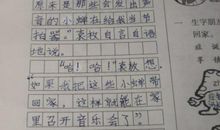 原来是那些会发出声
音的小蝉在给我当节
拍器”袁枚自言自语
地说。
“哈！哈！”袁枚想
如果我把这些小虫带
回家，这样就能在家
里召开音乐会了？
一 生字朋
回家。